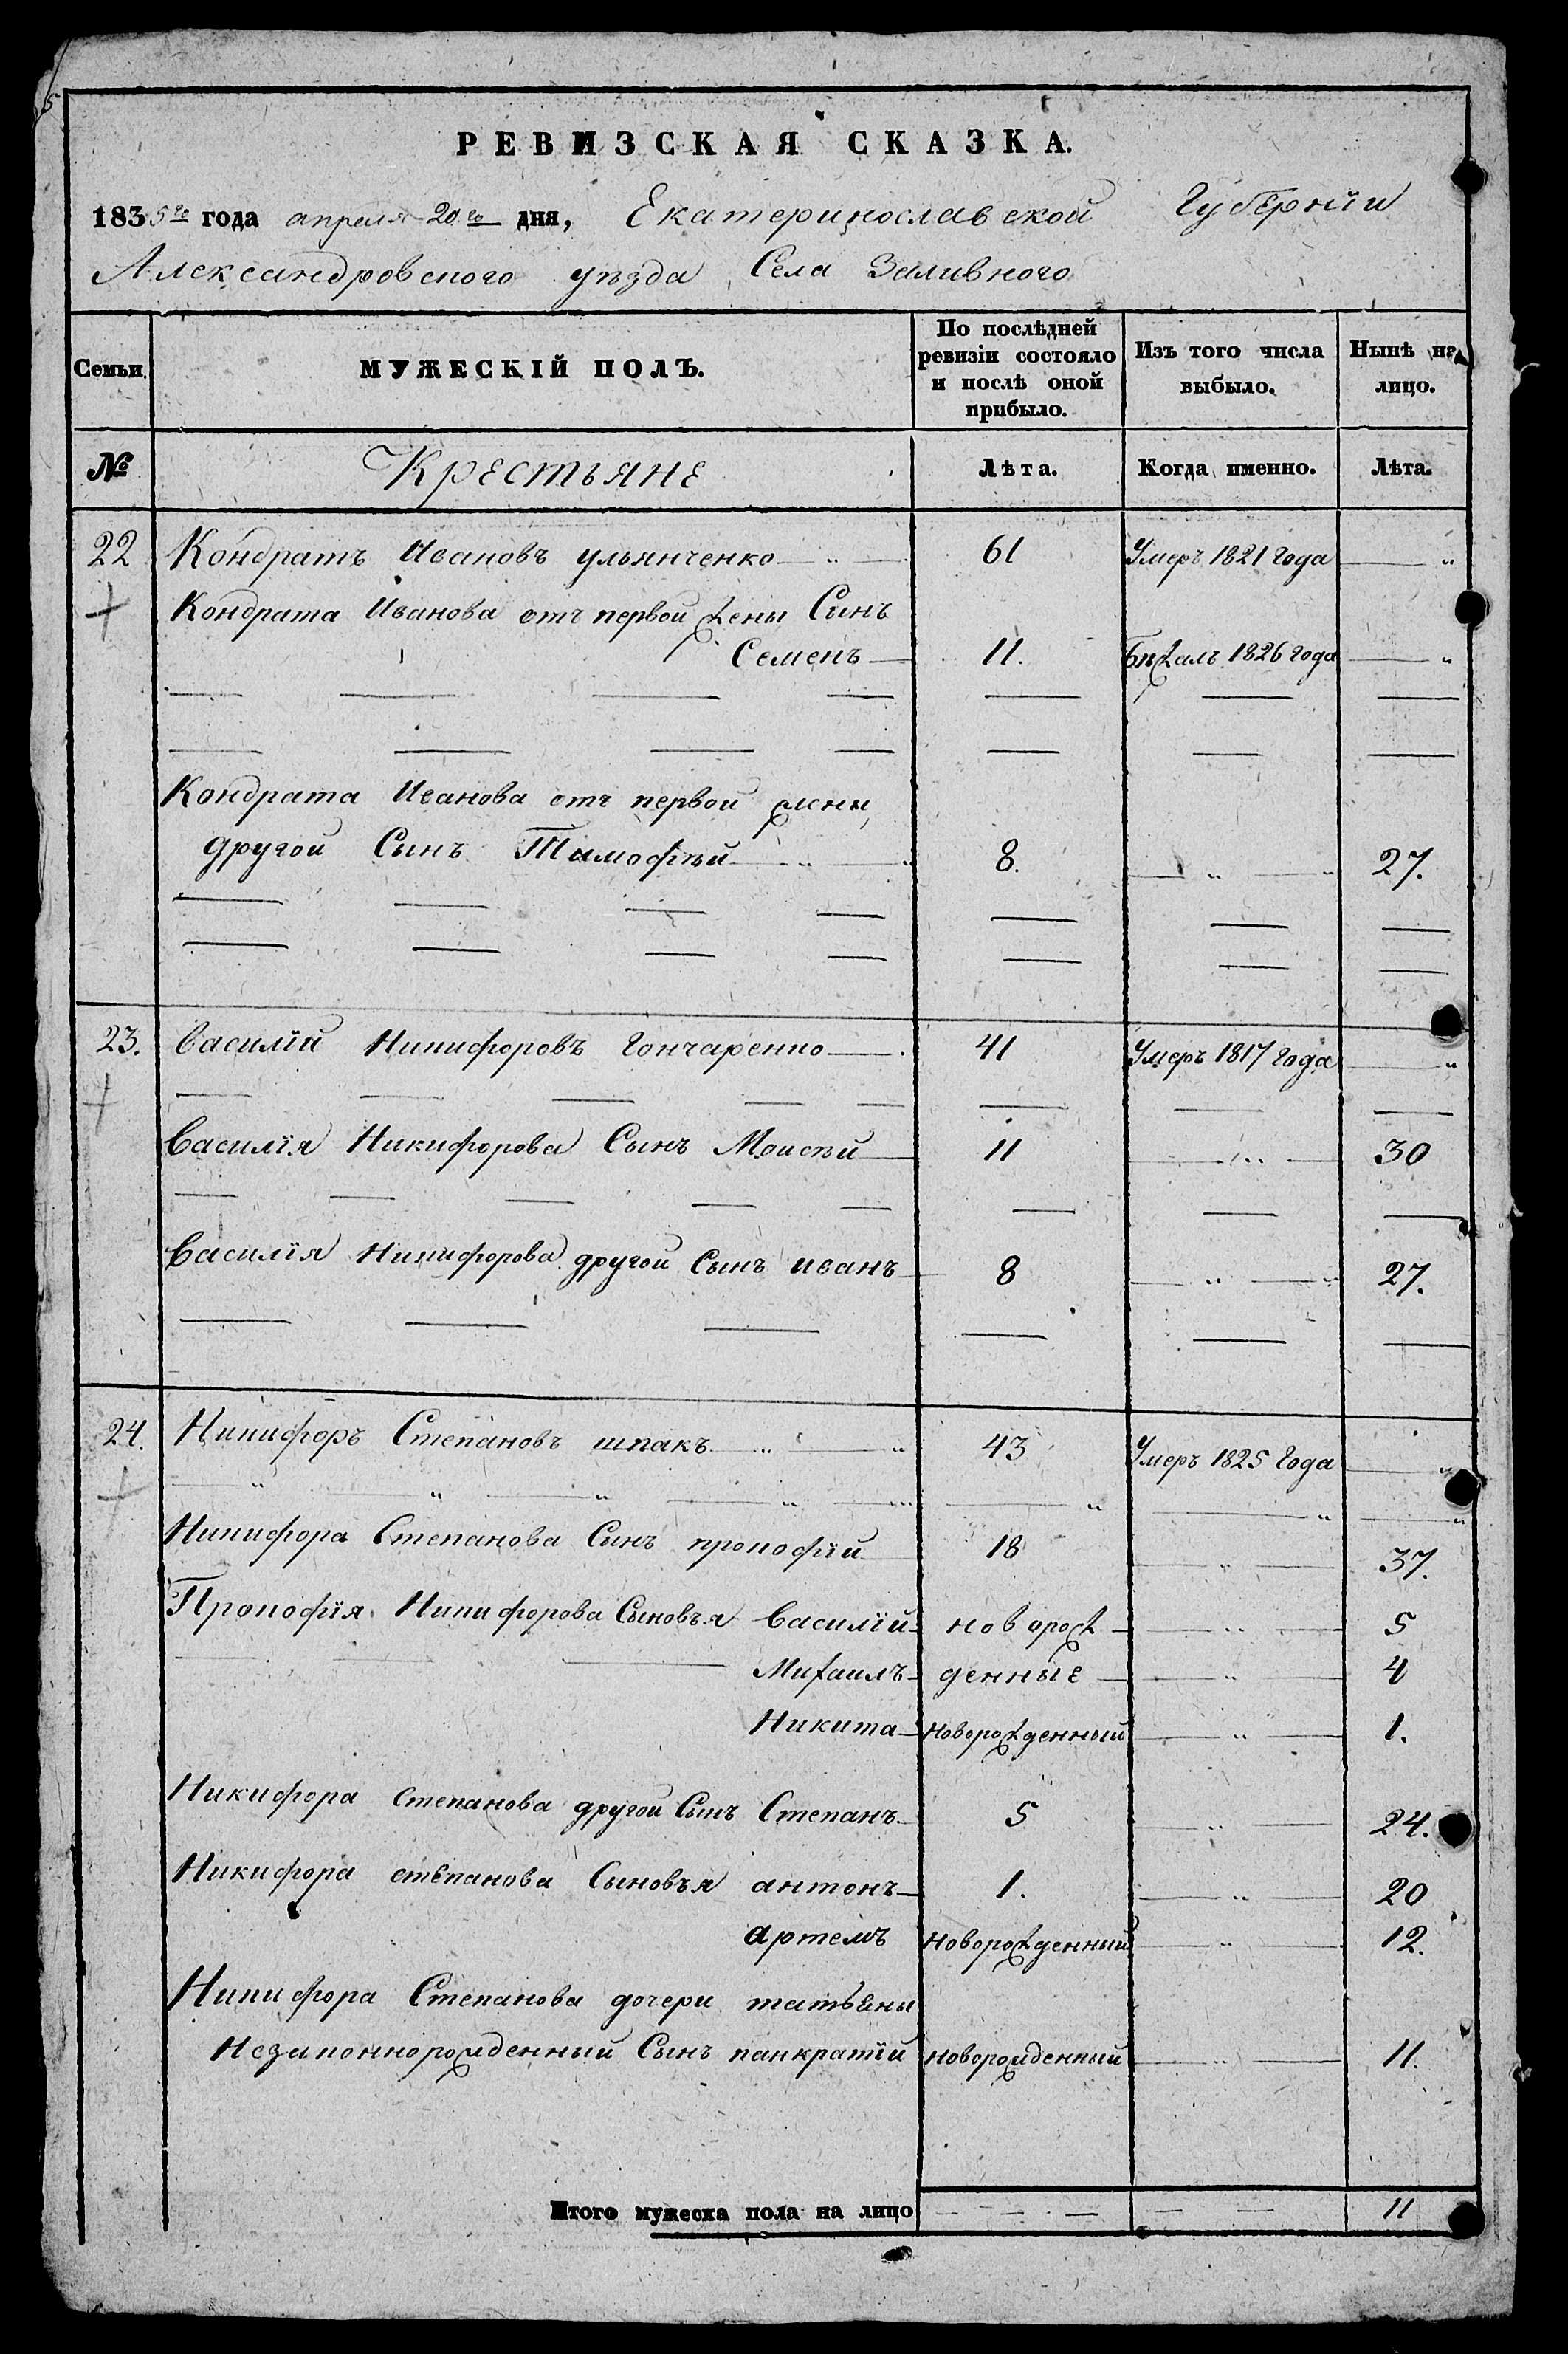 РЕВИЗСКАЯ СКАЗКА.
1835го года апреля 20го дня, Екатеринославской Губерніи
Александровского уѣзда Села Заливного
Семьи. МУЖЕСКІЙ ПОЛЪ. По послѣдней ревизіи состояло и послѣ оной прибыло. Изъ того числа выбыло. Нынѣ на лицо.
№ Крестьяне Лѣта. Когда именно. Лѣта.
22 Кондратъ Ивановъ ульянченко 61 Умеръ 1821 года
Кондрата Иванова отъ первой жены Сынъ
Семенъ 11. Бѣжалъ 1826 года
Кондрата Иванова отъ первой жены
другой Сынъ Тимофѣй 8. 27.
23. Василій Никифоровъ Гончаренко 41 Умеръ 1817 года
Василія Никифорова Сынъ Моисѣй 11 30
Василія Никифорова другой Сынъ иванъ 8 27.
24. Никифоръ Степановъ шпакъ 43 Умеръ 1825 года
Никифора Степанова Сынъ прокофій 18 37.
Прокофія Никифорова Сыновья Василій новорож 5
Михаилъ денные 4
Никита Новорожденный 1.
Никифора Степанова другой Сынъ Степанъ 5 24.
Никифора степанова Сыновья антонъ 1. 20
артемъ Новорожденный 12.
Никифора Степанова дочери татьяны
Незаконнорожденный Сынъ панкратій новорожденный 11.
Итого мужеска пола на лицо 11